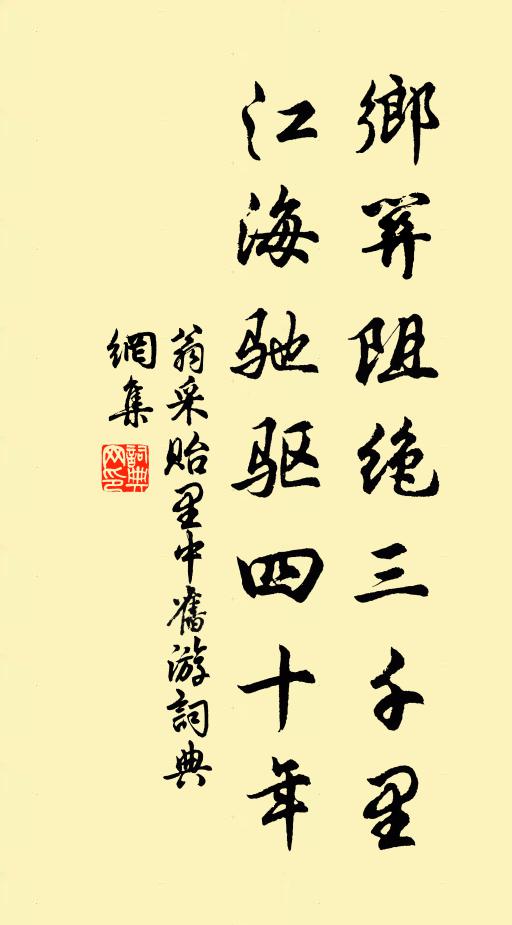 鄉關阻絶三千里
江海驰驱四十年
翁采貽里中舊游詞典
網集
詞典
网印